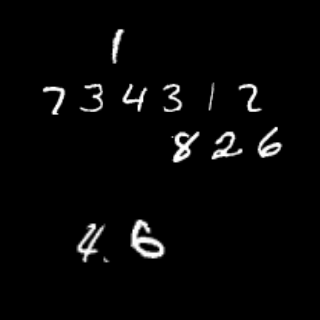 1
734312
826
4.6